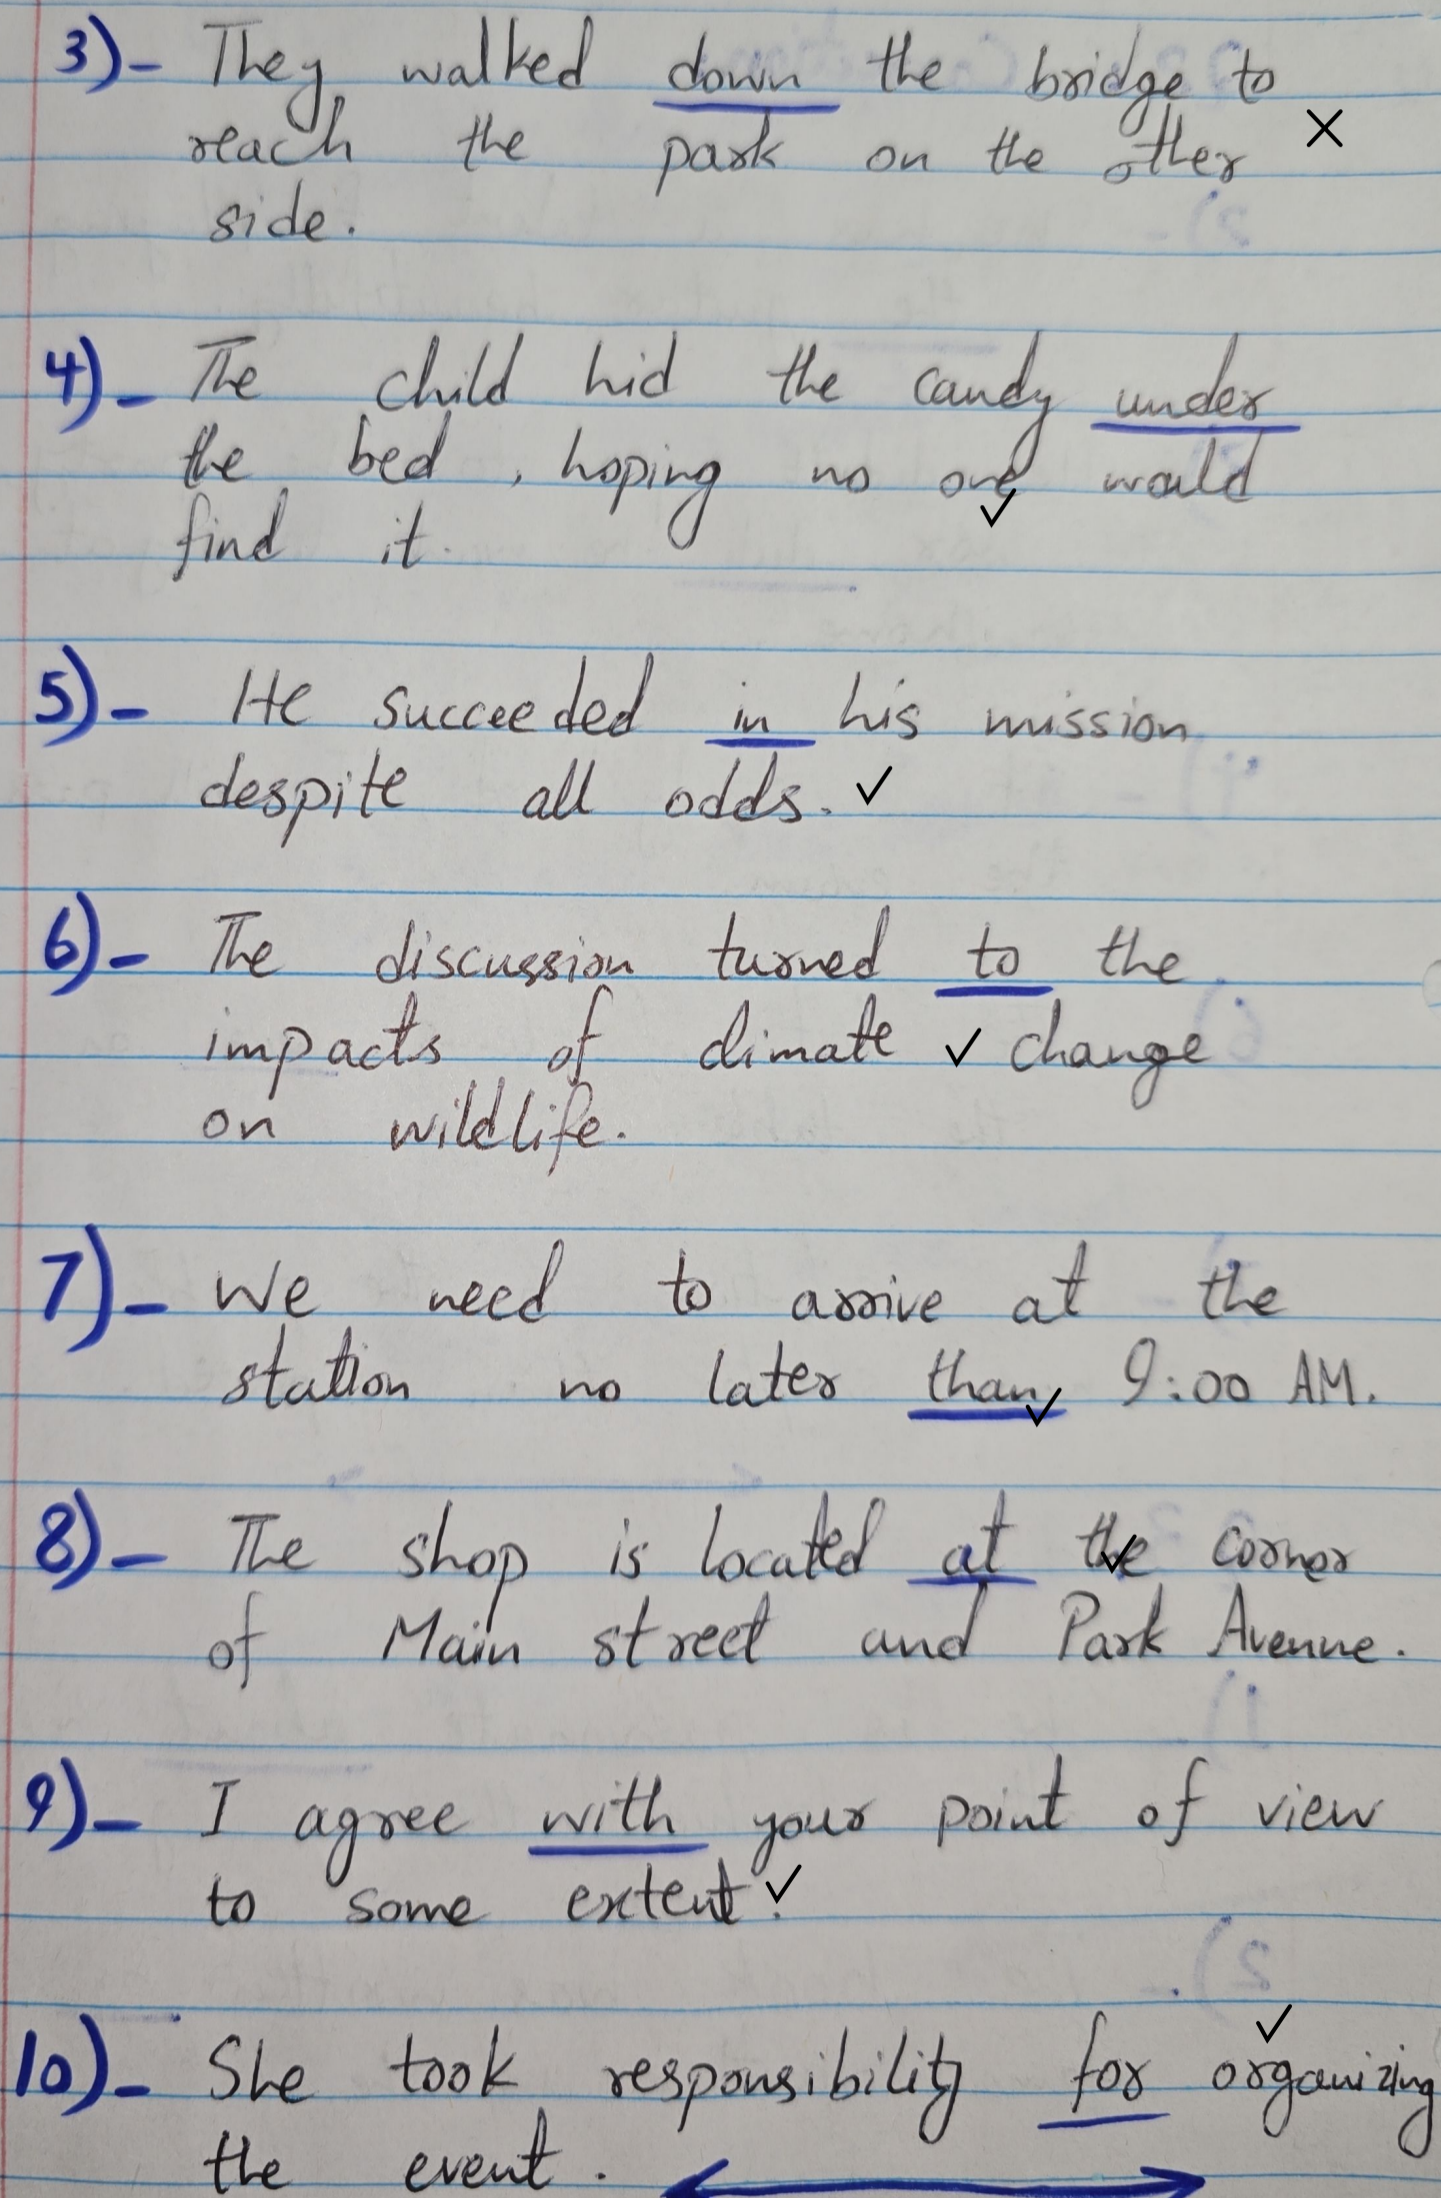 3)- They walked down the bridge to
reach the park on the other
side.
4)- The child hid the candy under
the bed, hoping no one would
find it.
5)- He succeeded in his mission
despite all odds.
6)- The discussion turned to the
impacts of climate change
on wildlife.
7)- We need to arrive at the
station no later than 9:00 AM.
8)- The shop is located at the corner
of Main street and Park Avenue.
9)- I agree with your point of view
to some extent.
10)- She took responsibility for organizing
the event.